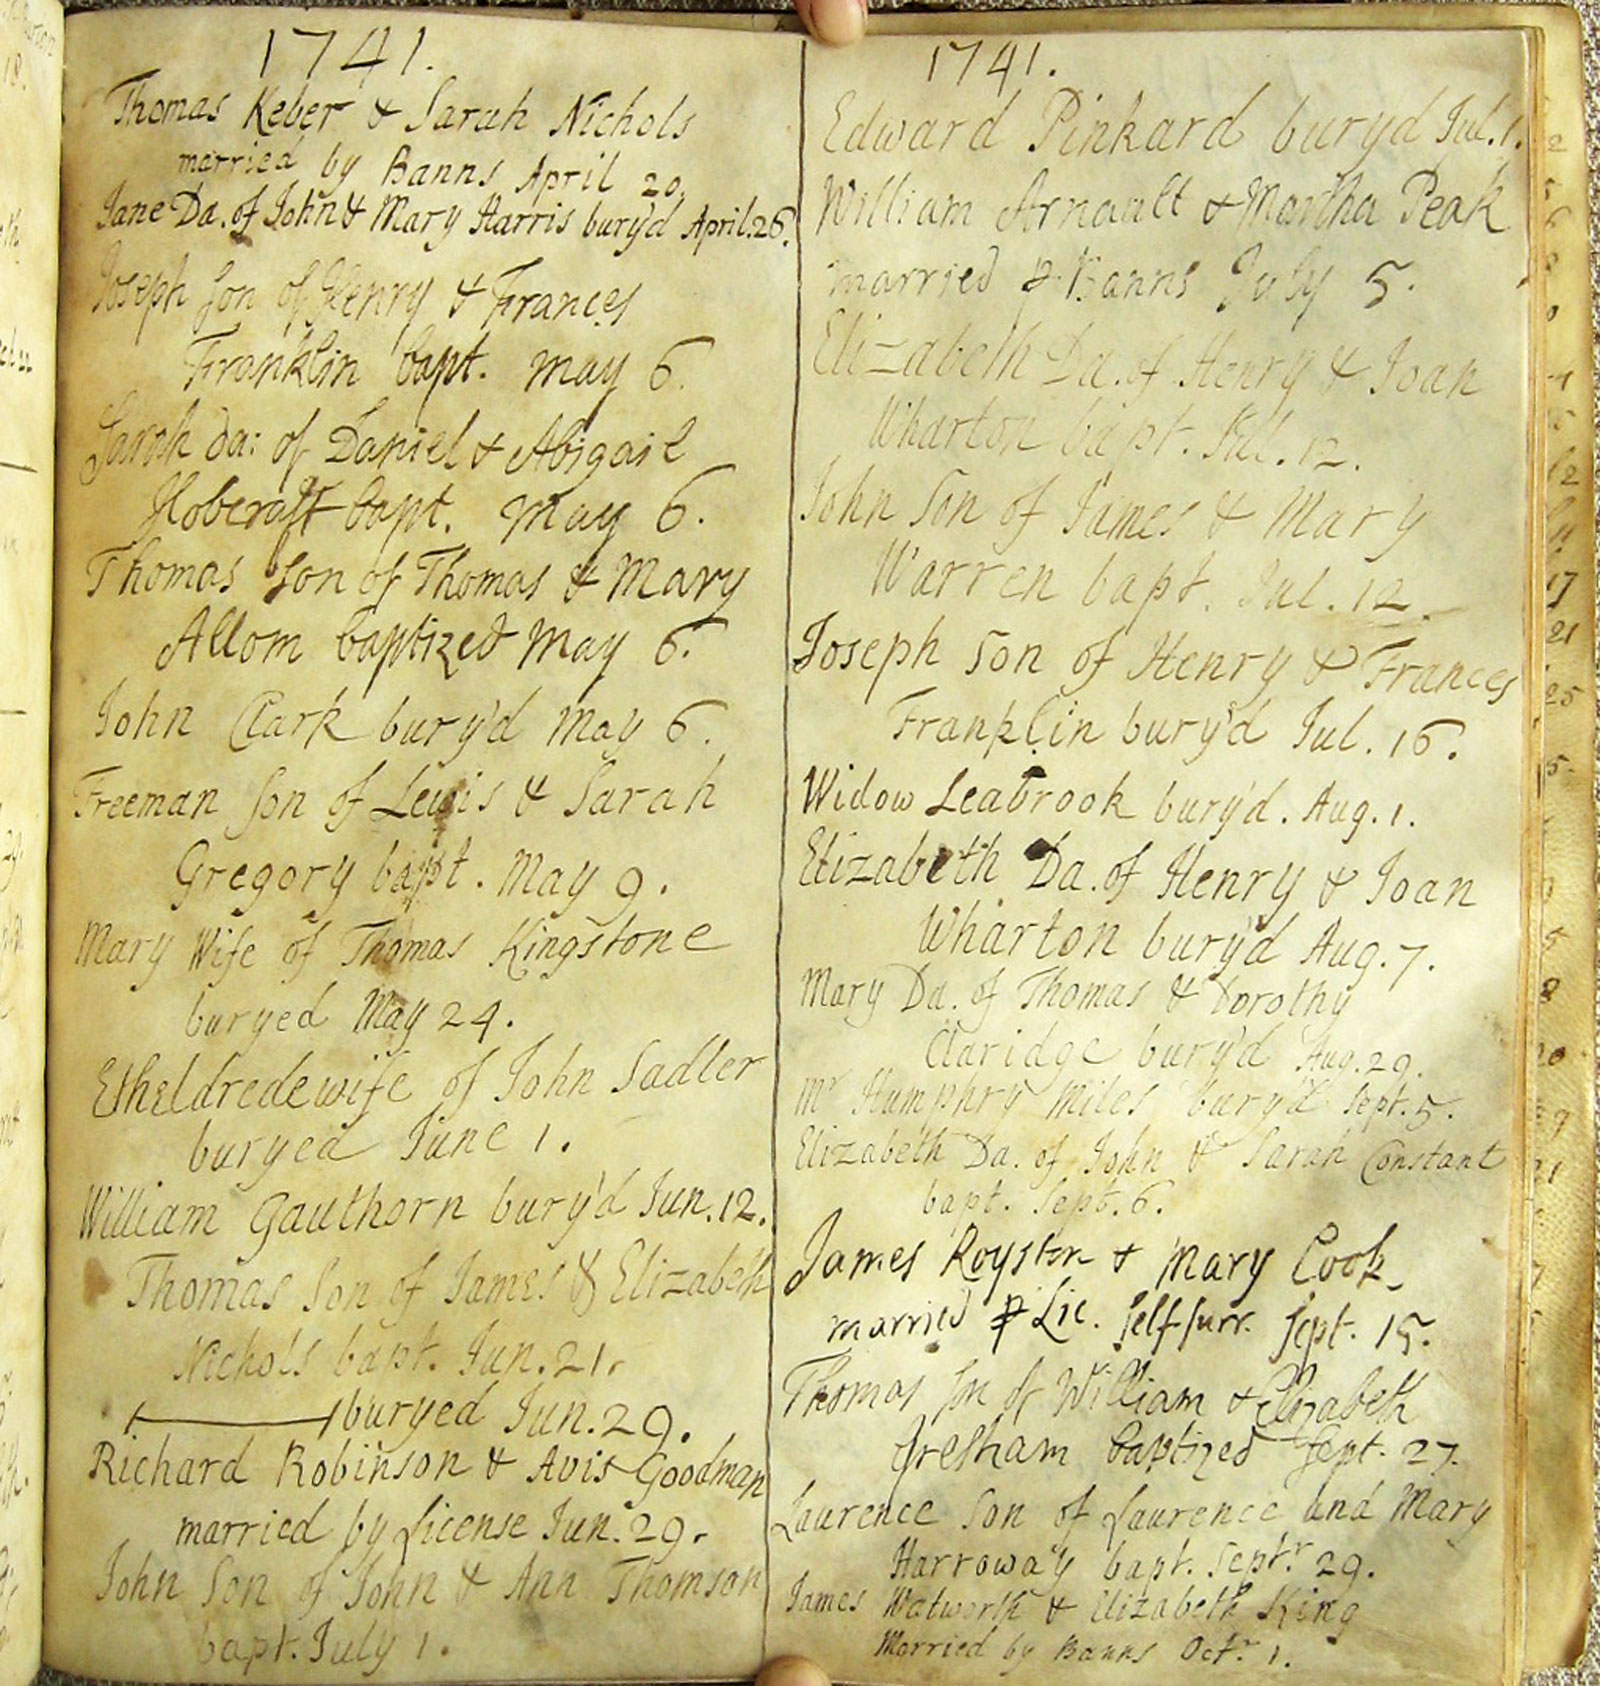 1741.
Thomas Keber & Sarah Nichols
married by Banns April 20.
Jane Da. of John & Mary Harris bury'd April.26.
Joseph Son of Henry & Frances
Franklin bapt. May 6.
Sarah Da: of Daniel & Abigail
Hobcraft bapt. May 6.
Thomas Son of Thomas & Mary
Allom baptized May 6.
John Clark bury'd May 6.
Freeman Son of Lewis & Sarah
Gregory bapt. May 9.
Mary Wife of Thomas Kingstone
buryed May 24.
Etheldrede wife of John Sadler
buryed June 1.
William Gauthorn bury'd Jun.12.
Thomas Son of James & Elizabeth
Nichols bapt. Jun.21.
buryed Jun.29.
Richard Robinson & Avis Goodman
married by License Jun.29.
John Son of John & Ann Thomson
bapt. July 1.
1741.
Edward Pinkard bury'd Jul.1.
William Arnault & Martha Peak
married ꝑ Banns July 5.
Elizabeth Da. of Henry & Joan
Wharton bapt. Jul.12.
John Son of James & Mary
Warren bapt. Jul.12.
Joseph Son of Henry & Frances
Franklin bury'd Jul.16.
Widow Seabrook bury'd. Aug.1.
Elizabeth Da. of Henry & Joan
Wharton bury'd Aug.7.
Mary Da. of Thomas & Dorothy
Claridge bury'd Aug.29.
Mr Humphry Miles bury'd Sept.5.
Elizabeth Da. of John & Sarah Constant
bapt. Sept.6.
James Royston & Mary Cook
married ꝑ Lic. Self Surr. Sept. 15.
Thomas Son of William & Elizabeth
Gresham baptized Sept. 27.
Laurence Son of Laurence and Mary
Harroway bapt. Septr 29.
James Watworth & Elizabeth King
Married by Banns Octr 1.